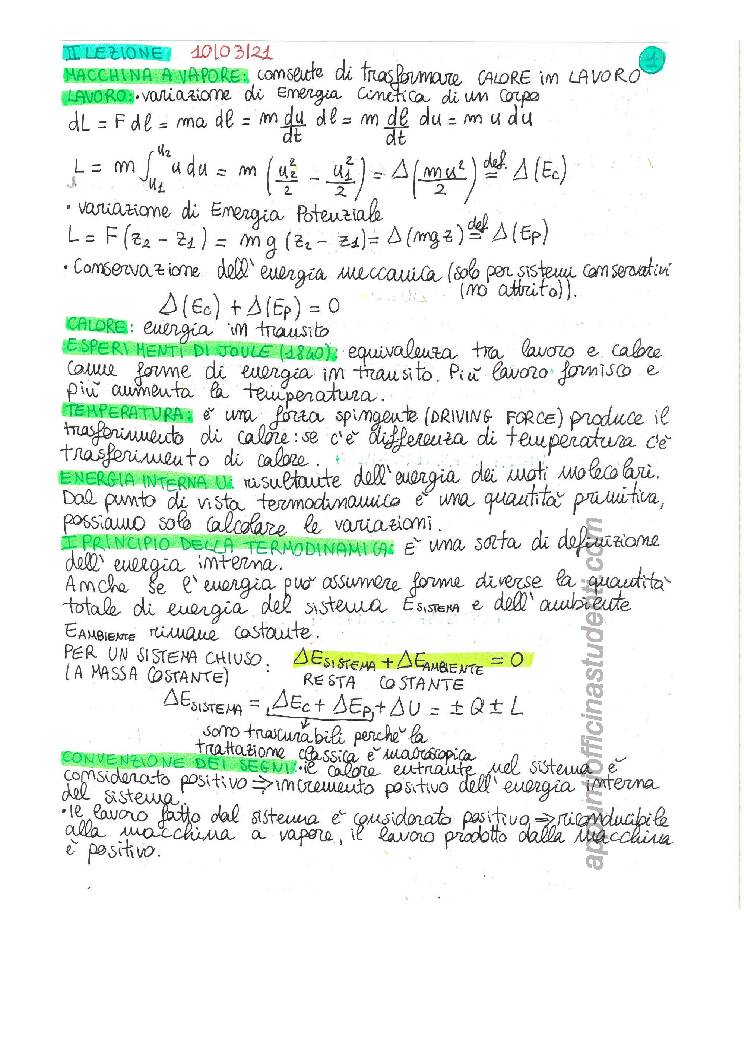 II LEZIONE 10/03/21 1
MACCHINA A VAPORE: consente di trasformare CALORE in LAVORO
LAVORO: • variazione di Energia Cinetica di un corpo
dL = F dl = ma dl = m du/dt dl = m dl/dt du = m u du
L = m ∫_{u1}^{u2} u du = m (u2²/2 - u1²/2) = Δ(mu²/2) def= Δ(Ec)
• variazione di Energia Potenziale
L = F(z2 - z1) = mg (z2 - z1) = Δ(mgz) def= Δ(Ep)
• Conservazione dell'energia meccanica (solo per sistemi conservativi
(no attrito)).
Δ(Ec) + Δ(Ep) = 0
CALORE: energia in transito
ESPERIMENTI DI JOULE (1840): equivalenza tra lavoro e calore
come forme di energia in transito. Più lavoro fornisco e
più aumenta la temperatura.
TEMPERATURA: è una forza spingente (DRIVING FORCE) produce il
trasferimento di calore: se c'è differenza di temperatura c'è
trasferimento di calore.
ENERGIA INTERNA U: risultante dell'energia dei moti molecolari.
Dal punto di vista termodinamico è una quantità primitiva,
possiamo solo calcolare le variazioni.
I PRINCIPIO DELLA TERMODINAMICA: È una sorta di definizione
dell'energia interna.
Anche se l'energia può assumere forme diverse la quantità
totale di energia del sistema E SISTEMA e dell'ambiente
E AMBIENTE rimane costante.
PER UN SISTEMA CHIUSO: ΔE SISTEMA + ΔE AMBIENTE = 0
(A MASSA COSTANTE) RESTA COSTANTE
ΔE SISTEMA = ΔEc + ΔEp + ΔU = ± Q ± L
sono trascurabili perchè la
trattazione classica è macroscopica
CONVENZIONE DEI SEGNI: • il calore entrante nel sistema è
considerato positivo ⇒ incremento positivo dell'energia interna
del sistema.
• il lavoro fatto dal sistema è considerato positivo ⇒ riconducibile
alla macchina a vapore, il lavoro prodotto dalla macchina
è positivo.
appuntiofficinastudenti.com